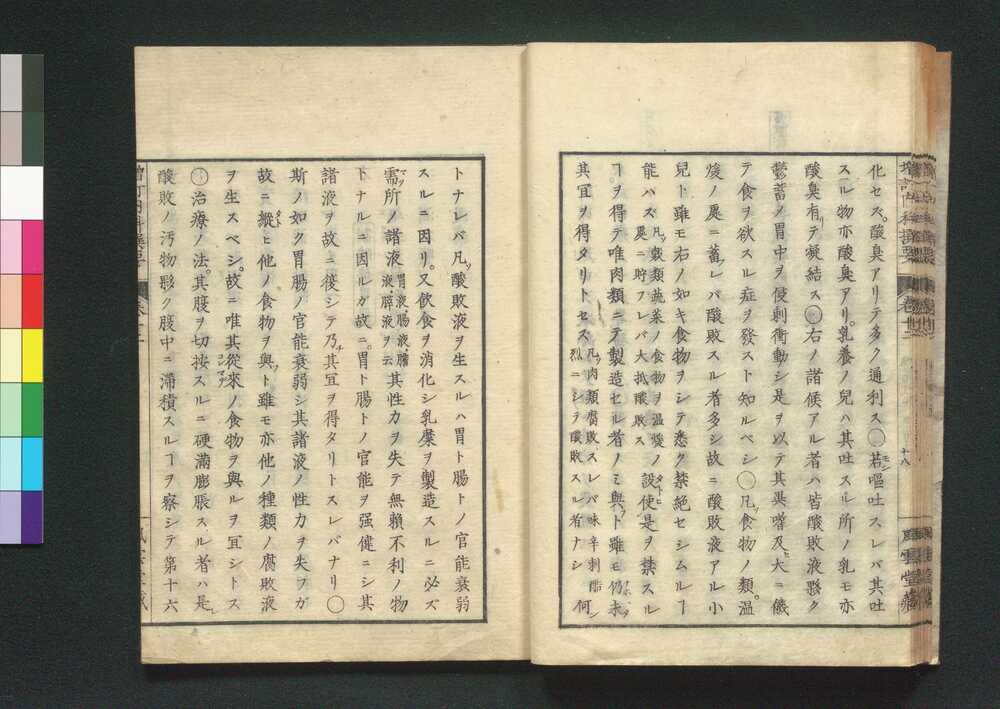 化セズ。酸臭アリテ多ク通利ス〇若嘔吐スレバ其吐
スル物亦酸臭アリ。乳養ノ兒ハ其吐スル所ノ乳モ亦
酸臭有テ凝結ス〇右ノ諸候アル者ハ皆酸敗液夥ク
鬱蓄ノ胃中ヲ侵刺衝動シ是ヲ以テ其
テ食ヲ欲スル症ヲ發スト知ルベシ〇凡食物ノ類。温
煖ノ處ニ蓄レバ酸敗スル者多シ故ニ酸敗液アル小
兒ト雖モ右ノ如キ食物ヲシテ悉ク禁絶セシムルヿ
能ハズ 凡穀類蔬菜ノ食物ヲ温煖ノ處ニ貯フレバ大抵酸敗ス 設使是ヲ禁スル
ヿヲ得テ唯肉類ニテ製造セル者ノミ與フト雖モ仍未
其宜ヲタリトセス 凡肉類腐敗スレバ味辛刺酷烈ニシテ酸敗スル者ナシ 何
トナレバ凡酸敗液ヲ生スルハ胃ト腸トノ官能衰弱
スルニ因リ。又飲食ヲ消化シ乳糜ヲ製造スルニ必ズ
需所ノ諸液 胃液腸液膽液膵液ヲ云 其性力ヲ失テ無賴不利ノ物
トナルニ因ルガ故ニ。胃ト腸トノ官能ヲ强健ニシ其
諸液ヲ故ニ復シテ乃チ其宜ヲ得タリトスレバナリ〇
斯ノ如ク胃腸ノ官能衰弱シ其諸液ノ性力ヲ失フガ
故ニ縱ヒ他ノ食物ヲ與フト雖モ亦他ノ種類ノ腐敗液
ヲ生スベシ。故ニ唯其從來ノ食物ヲ與ルヲ宜シトス
〇治療ノ法。其腹ヲ切按スルニ硬滿膨脹スル者ハ是レ
酸敗ノ汚物夥ク腹中ニ滯積スルヿヲ察シテ第十六
十八